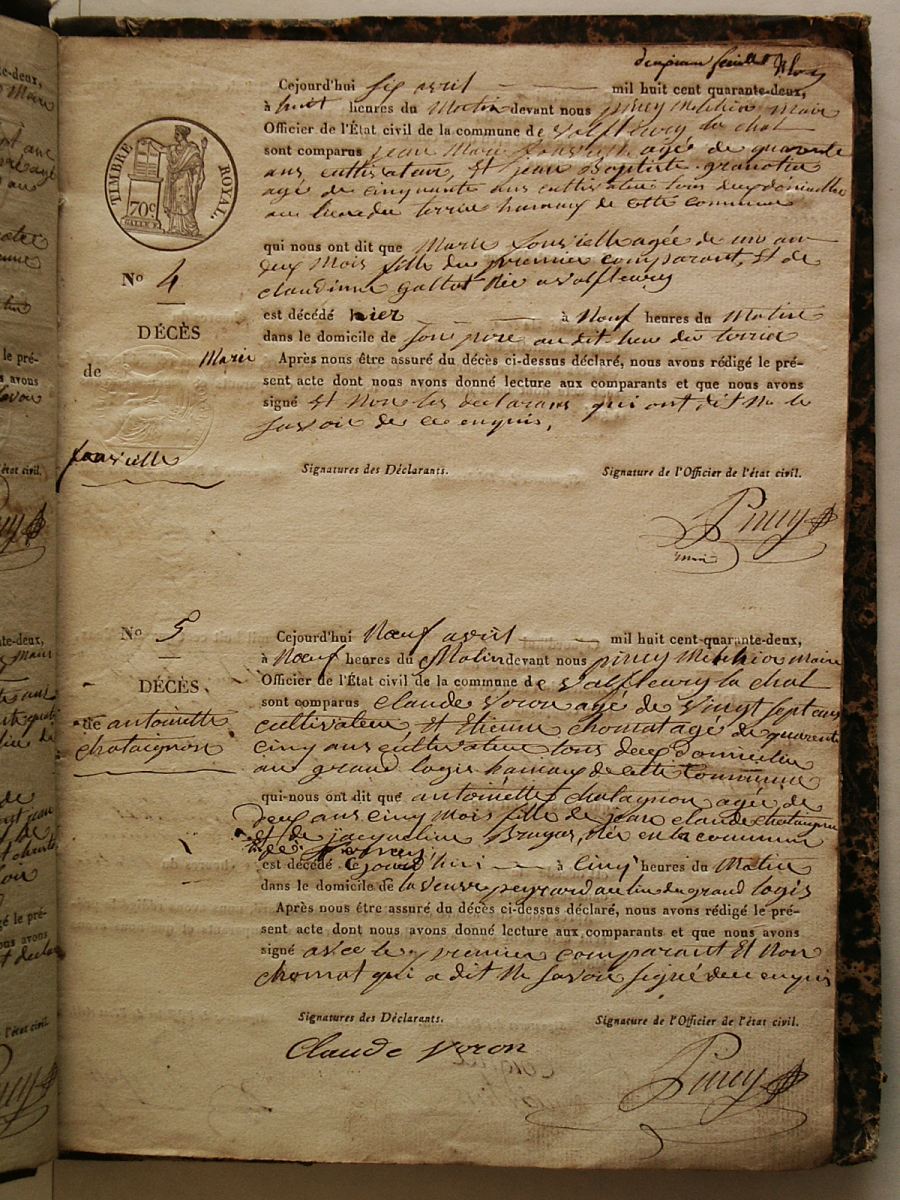 deuxieme feuillet
Cejourd'hui six avril mil huit cent quarante-deux,
à huit heures du Matin devant nous piney Melchior maire
Officier de l'État civil de la commune de Valfleury la chal
sont comparus jean Marie fonvielle agé de quarente
ans cultivateur, Et jean Baptiste
agé de cinquante ans cultivateur tous deux domiciliés
au lieu du terrie hamaux de cette commune
TIMBRE ROYAL.
70c
qui nous ont dit que Marie fonvielle agée de un an
deux Mois fille du premier comparant, Et de
Claudinne gallot Née a Valfleury
No 4
DÉCÈS
de Marie
fonvielle
est décédé hier à Neuf heures du Matin
dans le domicile de son pere au dit lieu du terrie
Après nous être assuré du décès ci-dessus déclaré, nous avons rédigé le pré-
sent acte dont nous avons donné lecture aux comparants et que nous avons
signé Et Non les declarans qui ont dit Ne le
savoir de ce enquis.
Signatures des Déclarants. Signature de l'Officier de l'état civil.
Piney
maire
No 5
DÉCÈS
de antoinette
chataignon
Cejourd'hui Nœuf avril mil huit cent quarante-deux,
à Nœuf heures du Matin devant nous piney Melchior Maire
Officier de l'État civil de la commune de Valfleury la chal
sont comparus Claude Voron agé de Vingt sept ans
cultivateur Et Etienne chomat agé de quarente
cinq ans cultivateur tous deux domicilies
au grand logis hamaux de cette Commune
qui nous ont dit que antoinette chatagnon agée de
deux ans cinq mois fille de jean claude chataignon
et de jacqueline Née en la commune
de
est décédé cejourd'hui à Cinq heures du Matin
dans le domicile de la Veuve peyrard au lieu du grand logis
Après nous être assuré du décès ci-dessus déclaré, nous avons rédigé le pré-
sent acte dont nous avons donné lecture aux comparants et que nous avons
signé avec le premier comparant Et Non
chomat qui a dit Ne savoir signé de ce enquis
Signatures des Déclarants. Signature de l'Officier de l'état civil.
Claude Voron
Piney